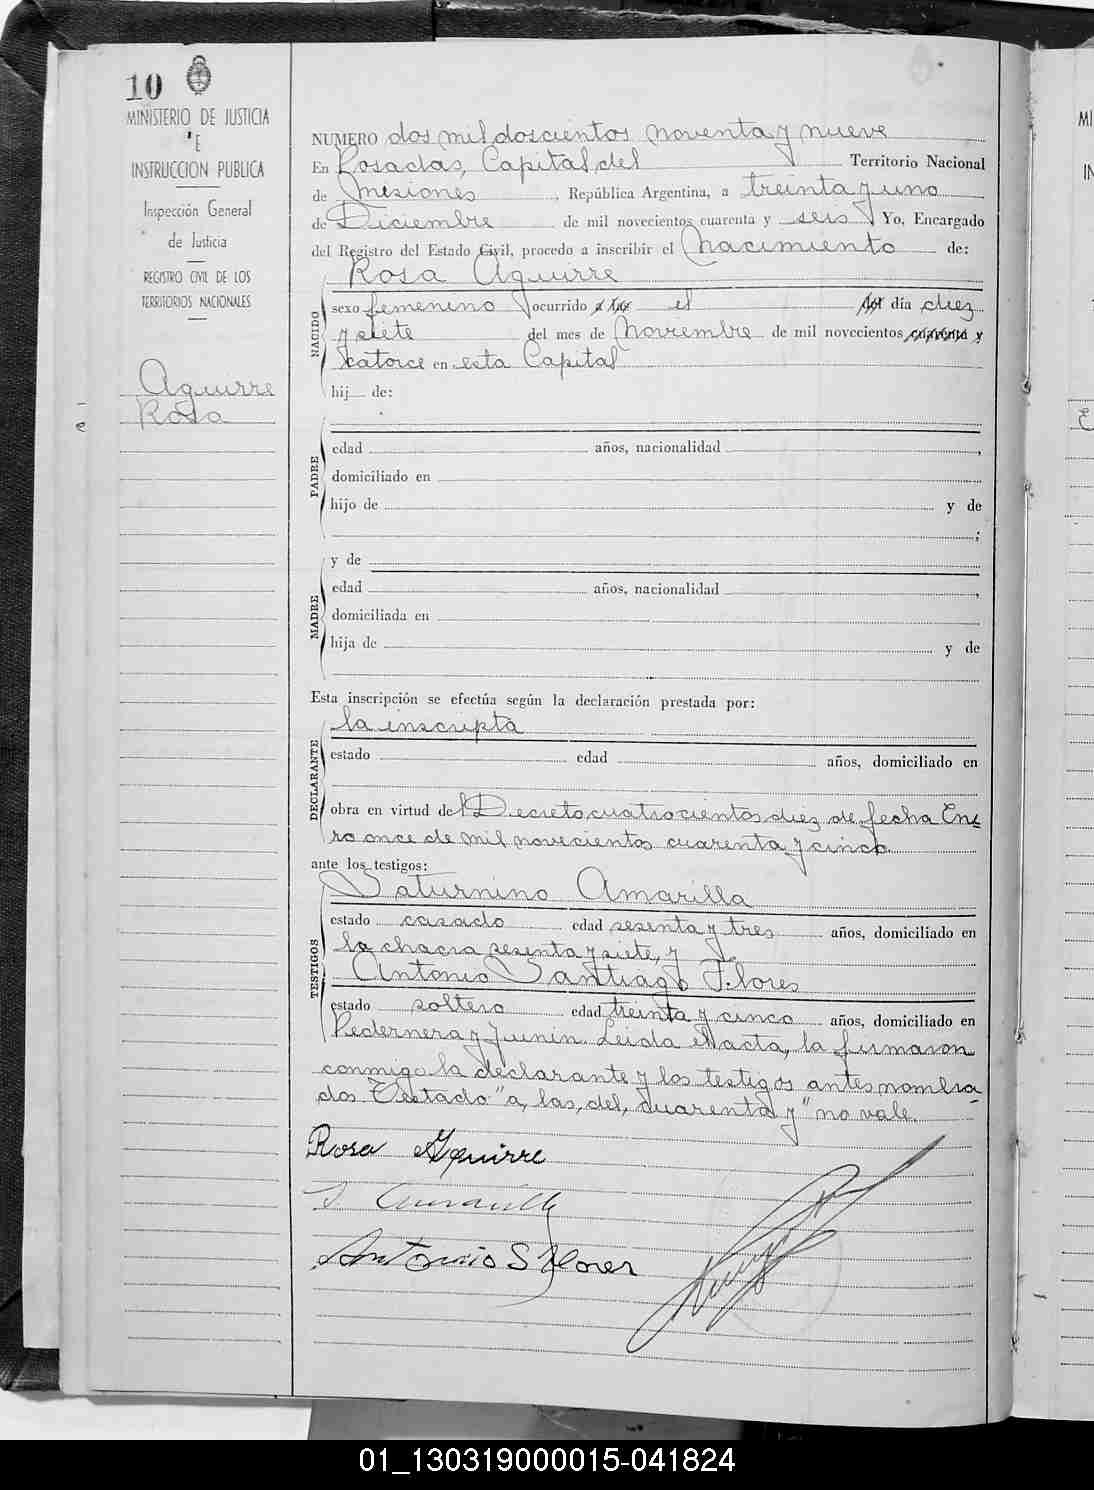 10
MINISTERIO DE JUSTICIA
E
INSTRUCCION PUBLICA
Inspección General
de Justicia
REGISTRO CIVIL DE LOS
TERRITORIOS NACIONALES
Aguirre
Rosa
NUMERO dos mil doscientos noventa y nueve
En Posadas, Capital del Territorio Nacional
de Misiones, República Argentina, a treinta y uno
de Diciembre de mil novecientos cuarenta y seis Yo, Encargado
del Registro del Estado Civil, procedo a inscribir el Nacimiento de:
Rosa Aguirre
NACIDO
sexo femenino ocurrido a las el del día diez
y siete del mes de Noviembre de mil novecientos cuarenta y
catorce en esta Capital
hij de:
PADRE
edad años, nacionalidad ,
domiciliado en
hijo de y de
;
MADRE
y de
edad años, nacionalidad ,
domiciliada en
hija de y de
Esta inscripción se efectúa según la declaración prestada por:
DECLARANTE
la inscripta
estado edad años, domiciliado en
obra en virtud del Decreto cuatrocientos diez de fecha Ene
ro once de mil novecientos cuarenta y cinco
ante los testigos:
TESTIGOS
Saturnino Amarilla
estado casado edad sesenta y tres años, domiciliado en
la chacra sesenta y siete, y
Antonio Santiago Flores
estado soltero edad treinta y cinco años, domiciliado en
Pedernera y Junin. Leida el acta, la firmaron
conmigo la declarante y los testigos antes nombra-
dos. Testado "a, las, del, cuarenta y" no vale.
Rosa Aguirre
S. Amarilla
Antonio S Flores
01_130319000015-041824